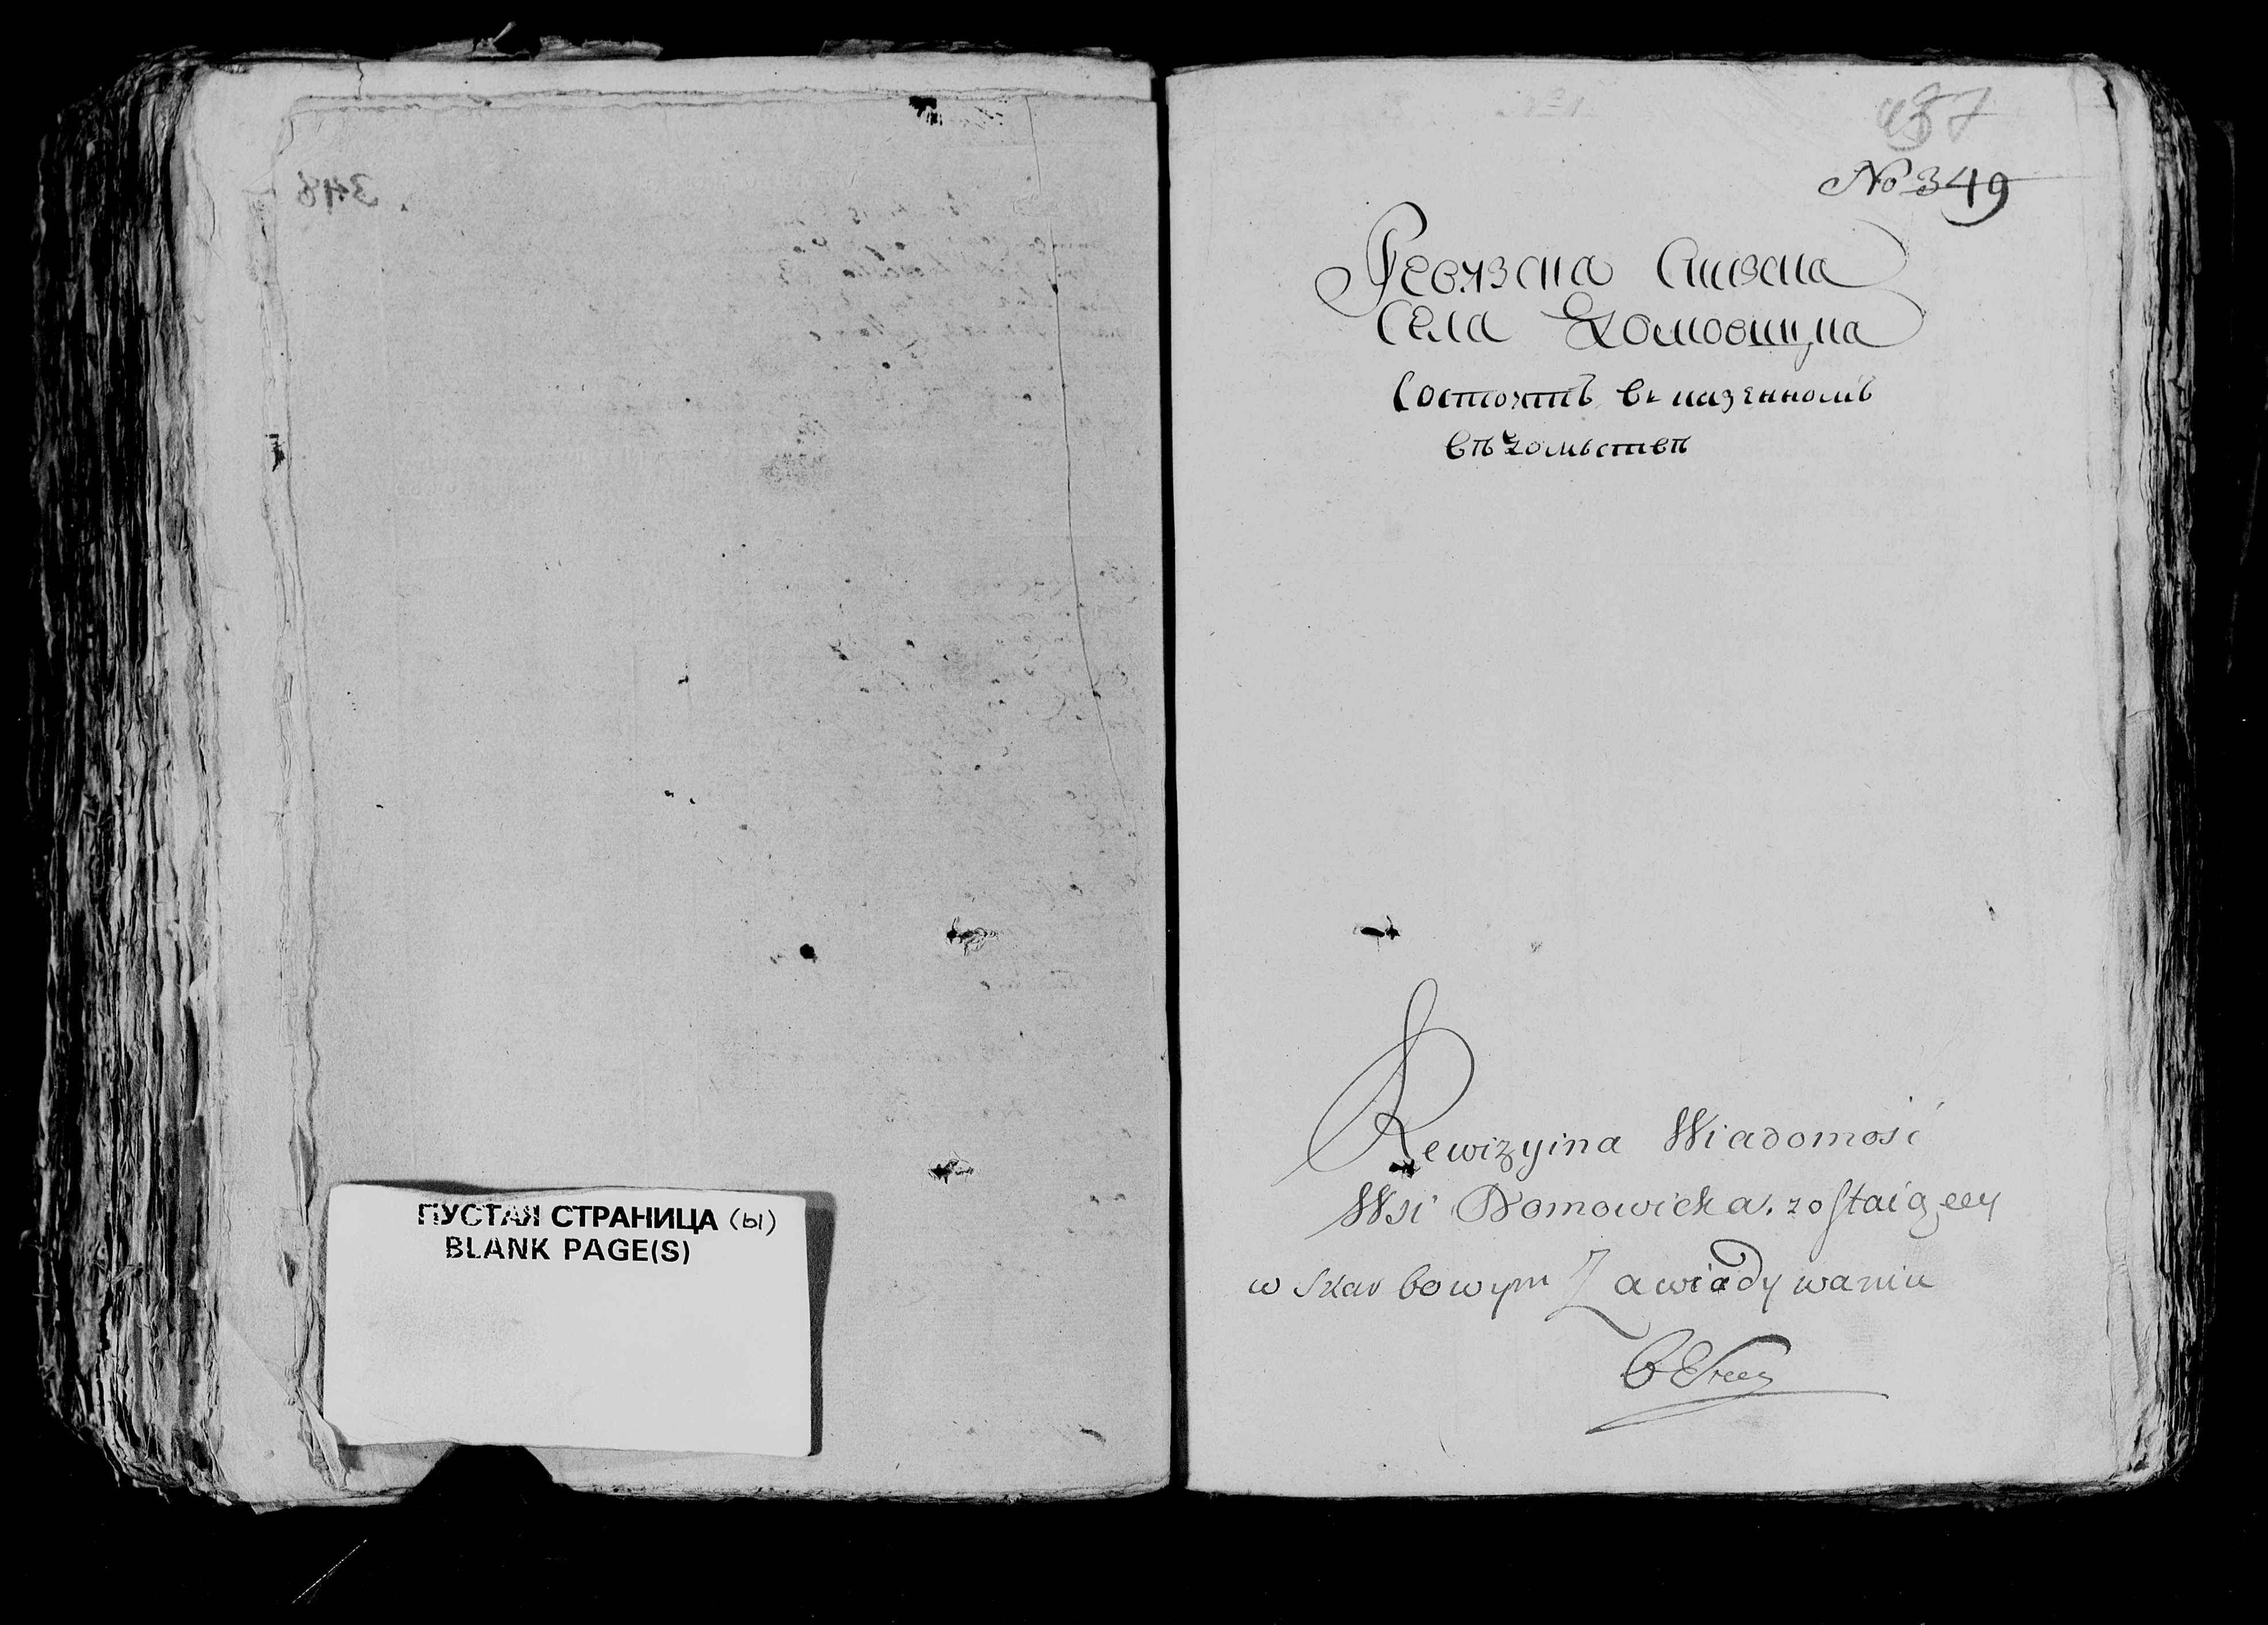 348
ПУСТАЯ СТРАНИЦА (ы)
BLANK PAGE(S)
487
No 349
Ревизска Сказка
Села Домовицка
Состоитъ въ казенномъ
вѣдомьствѣ
Rewizyina Wiadomosć
Wsi Domowicka, zostaiącey
w Skarbowym Zawiadywaniu